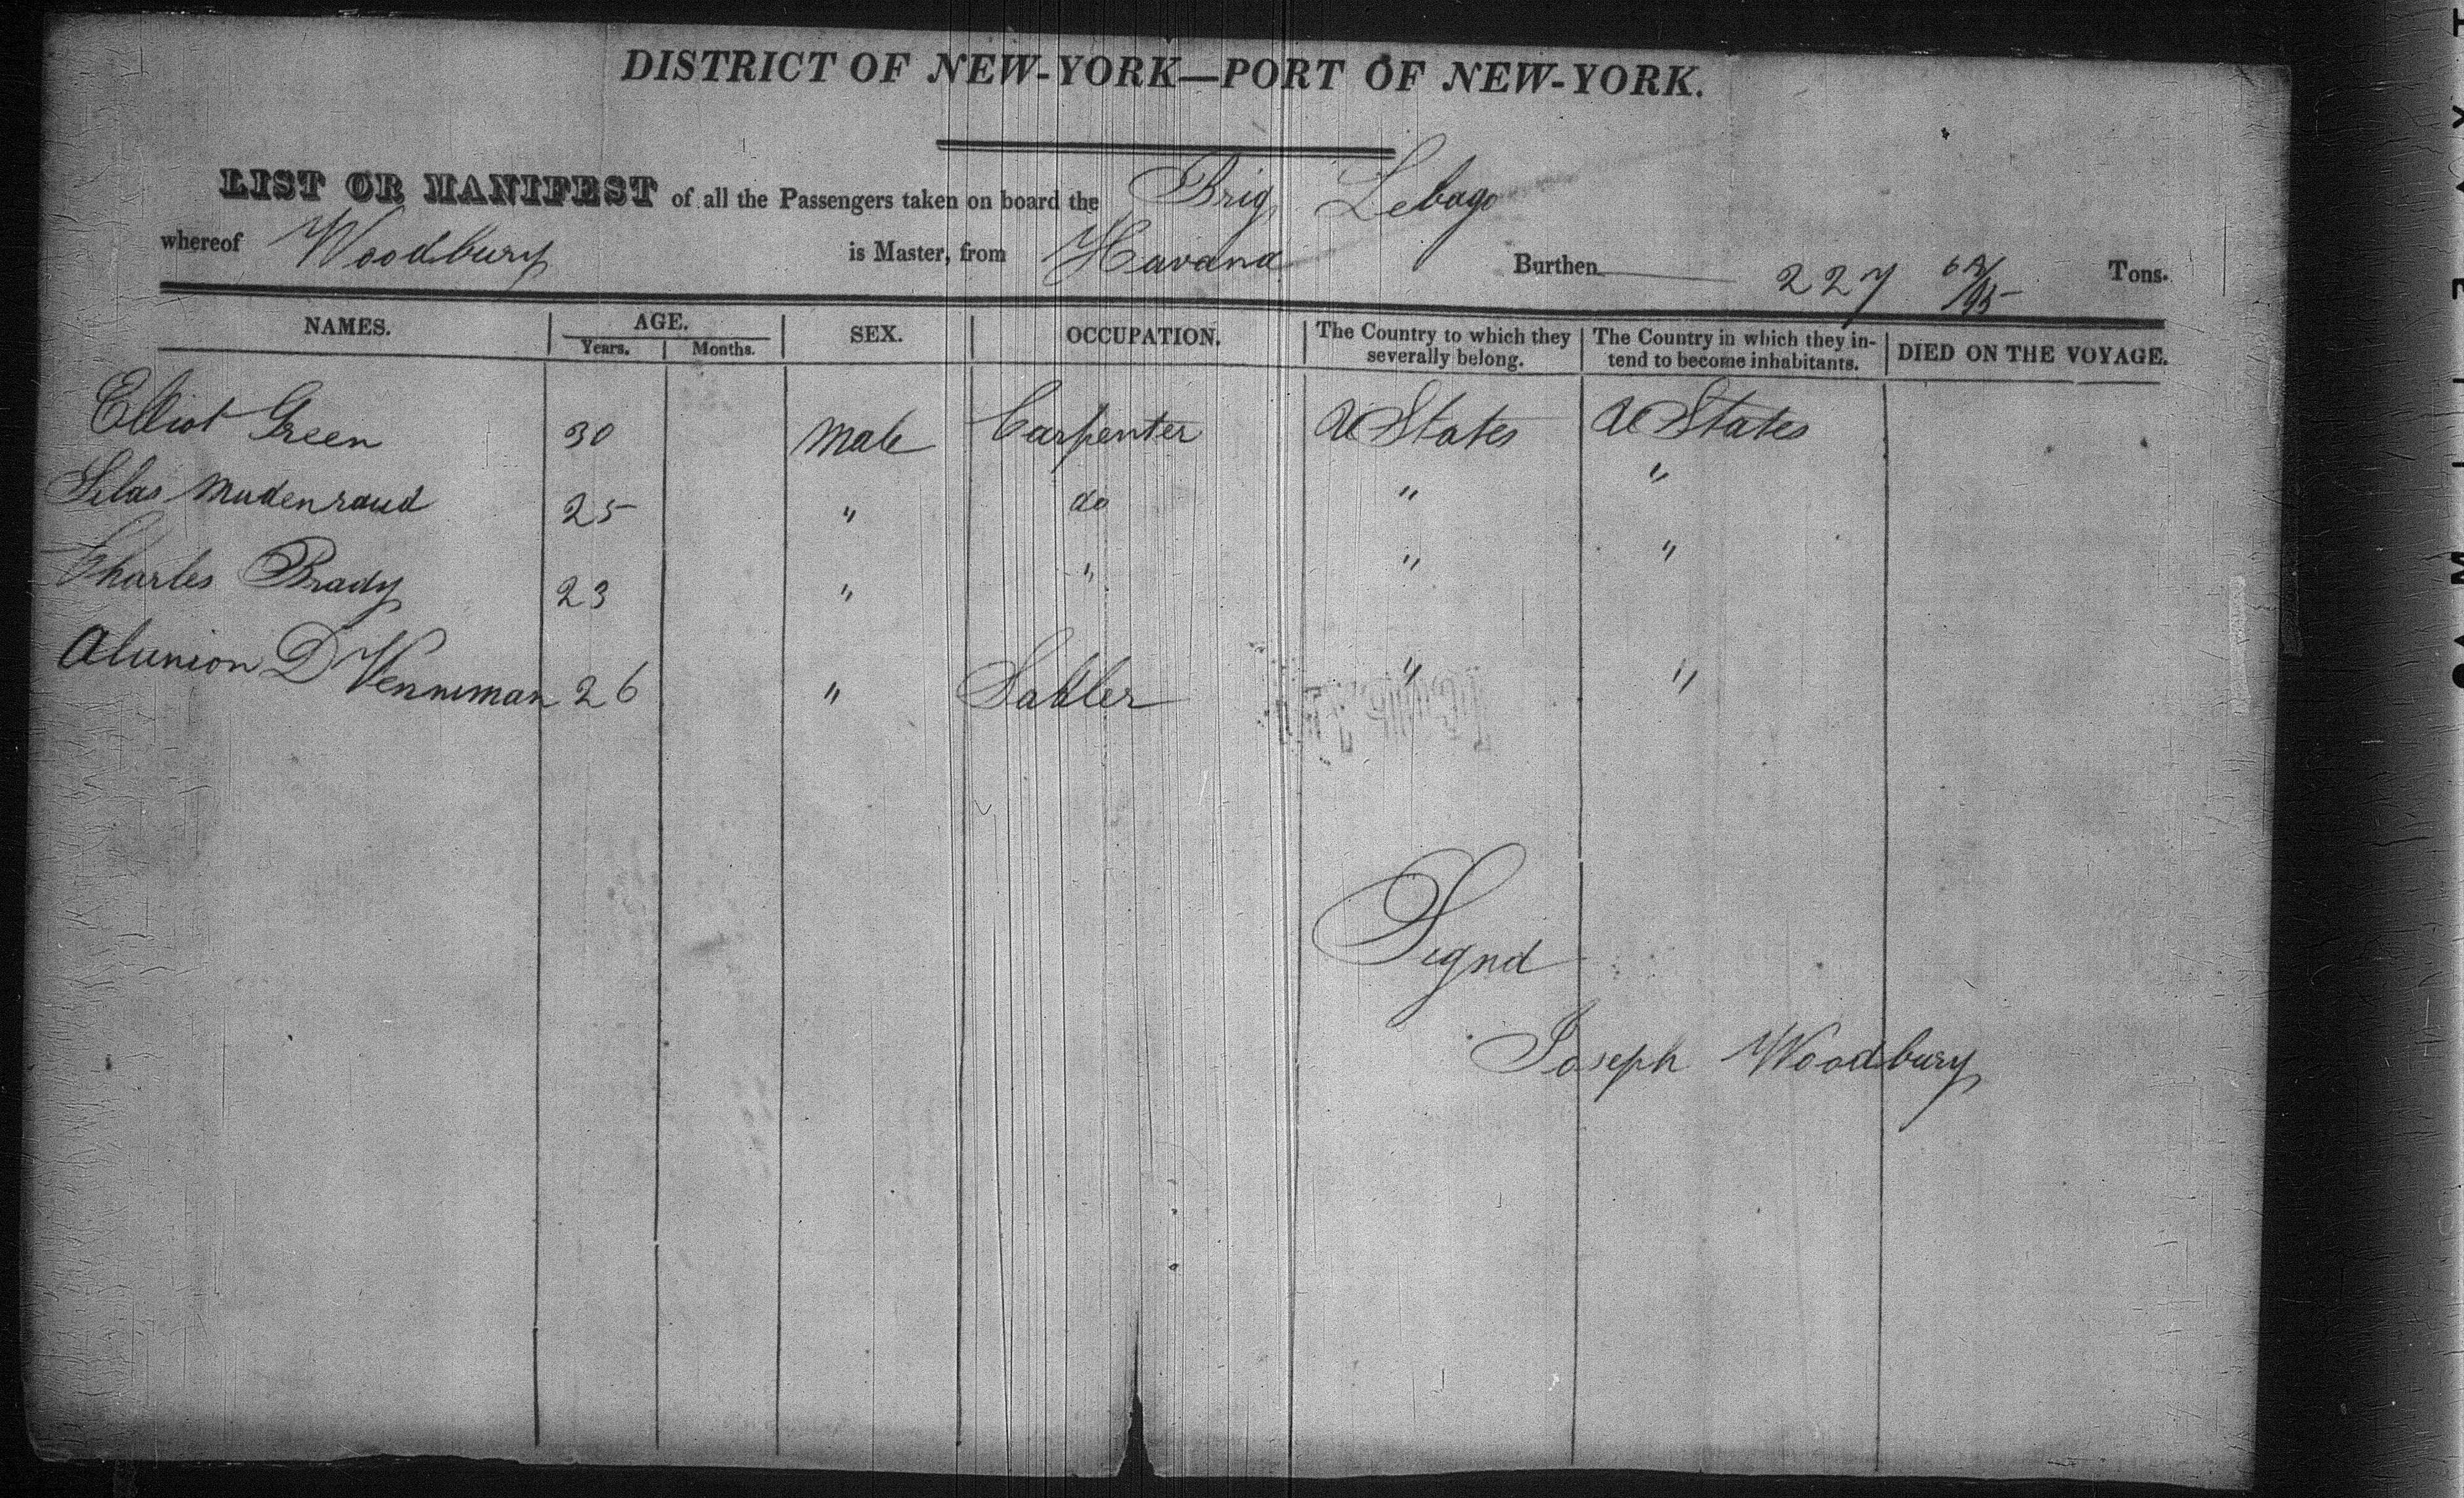 DISTRICT OF NEW-YORK—PORT OF NEW-YORK.
LIST OR MANIFEST of all the Passengers taken on board the Brig Sebago
whereof Woodbury is Master, from Havana Burthen 227 62/95 Tons.
NAMES. AGE. SEX. OCCUPATION. The Country to which they severally belong. The Country in which they in-tend to become inhabitants. DIED ON THE VOYAGE.
Years. Months.
Elliot Green 30 Male Carpenter U States U States
Silas 25 " do " "
Charles Brady 23 " " " "
D Venniman 26 " Sadler " "
Signd
Joseph Woodbury